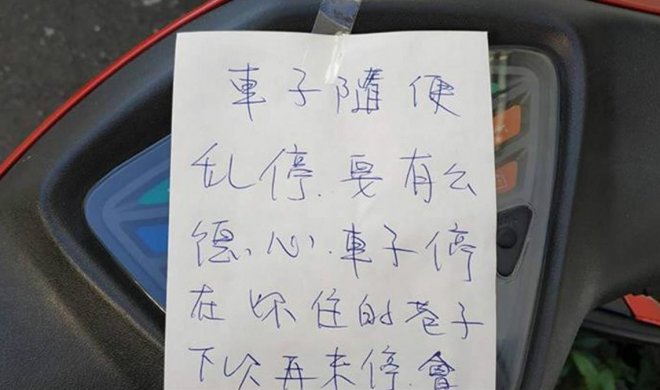 車子隨便
乱停.要有公
德心.車子停
在你住的巷子
下次再來停.會